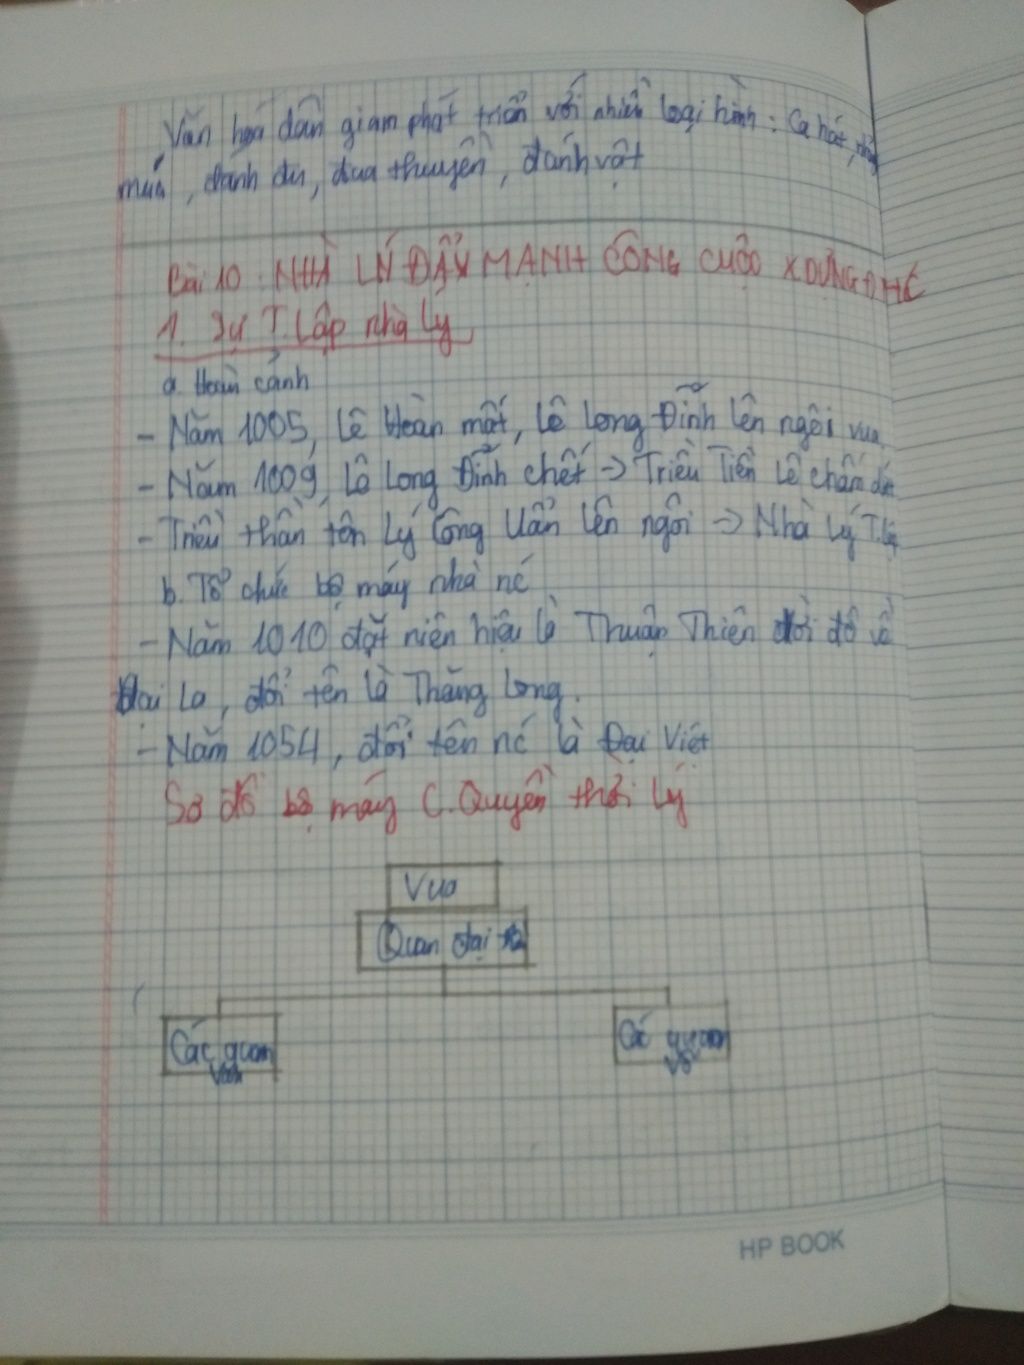 Văn hoá dân gian phát triển với nhiều loại hình: Ca hát,
múa, đánh đu, đua thuyền, đánh vật
Bài 10: NHÀ LÝ ĐẨY MẠNH CÔNG CUỘC X DỰNG ĐNC
1. Sự T.Lập nhà Lý
a. Hoàn cảnh
- Năm 1005, Lê Hoàn mất, Lê Long Đĩnh lên ngôi vua
- Năm 1009, Lê Long Đĩnh chết -> Triều Tiền Lê chấm dứt
- Triều thần tôn Lý Công Uẩn lên ngôi -> Nhà Lý T.lập
b. Tổ chức bộ máy nhà nc
- Năm 1010 đặt niên hiệu là Thuận Thiên dời đô về
Đại La, đổi tên là Thăng Long.
- Năm 1054, đổi tên nc là Đại Việt
Sơ đồ bộ máy C.Quyền thời Lý
Vua
Quan đại
Các quan
văn
Các quan
võ
HP BOOK